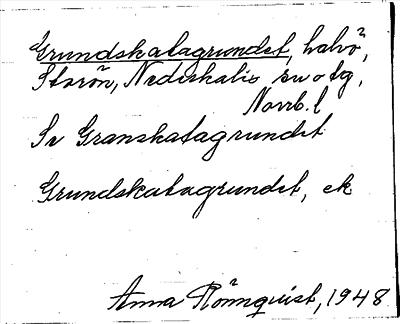 Grundskatagrundet, halvö,
Storön, Nederkalix sn o tg,
Norrb. l
Se Granskatagrundet
Grundskatagrundet, ek
Anna Rönnquist, 1948